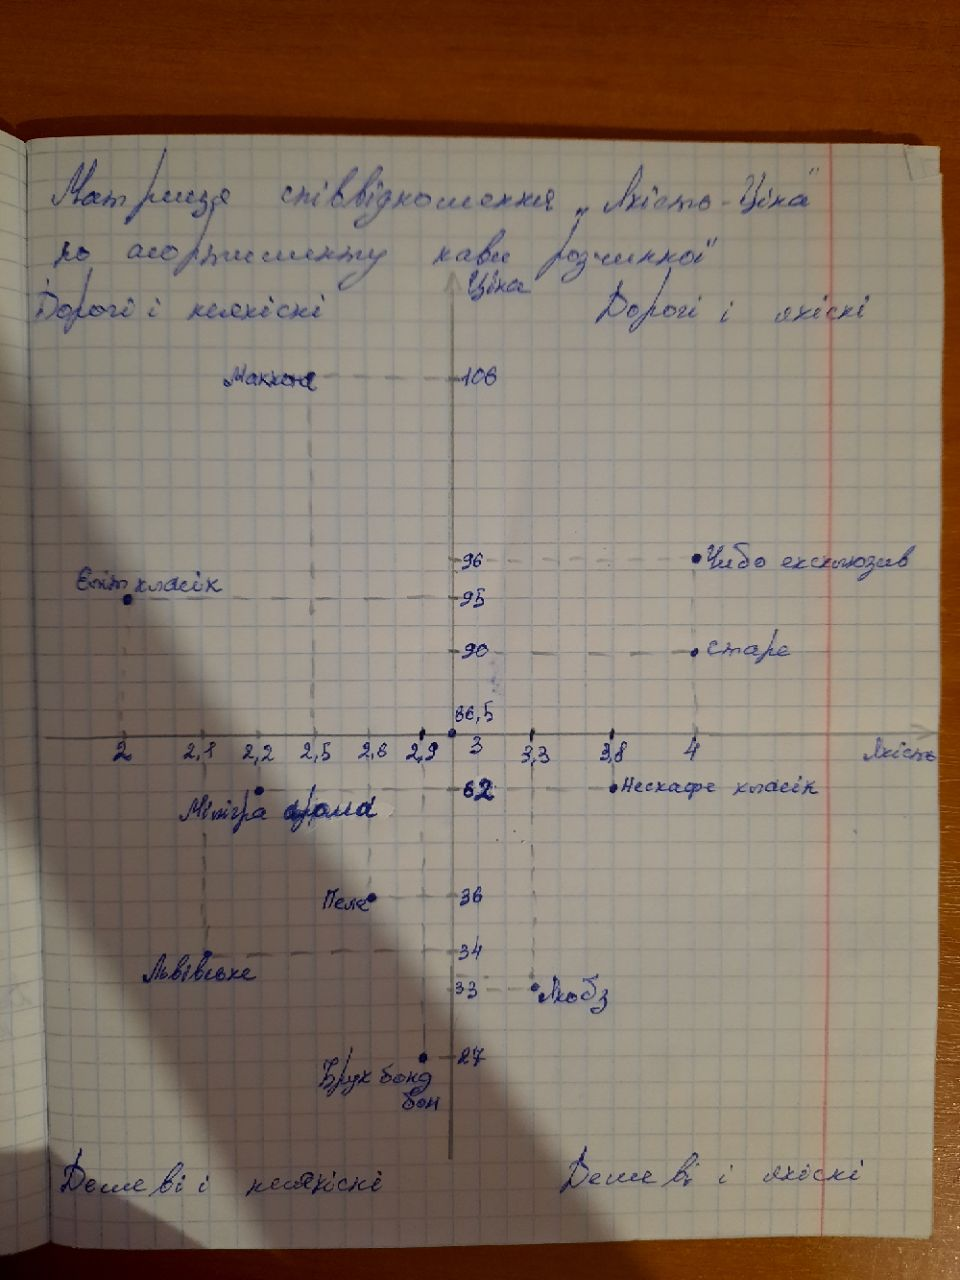 Матриця співвідношення „Якість-Ціна"
по асортименту кави розчинної"
Ціна
Дорогі і неякісні
Дорогі і якісні
Маккона
106
96
Чибо ексклюзив
Еліт класік
95
90
старе
66,5
2
2,1
2,2
2,5
2,6
2,9
3
3,3
3,8
4
Якість
62
Нескафе класік
Мілігра арома
Пеле
36
34
Львівське
33
Якобз
27
Брук бонд
бон
Дешеві і неякісні
Дешеві і якісні